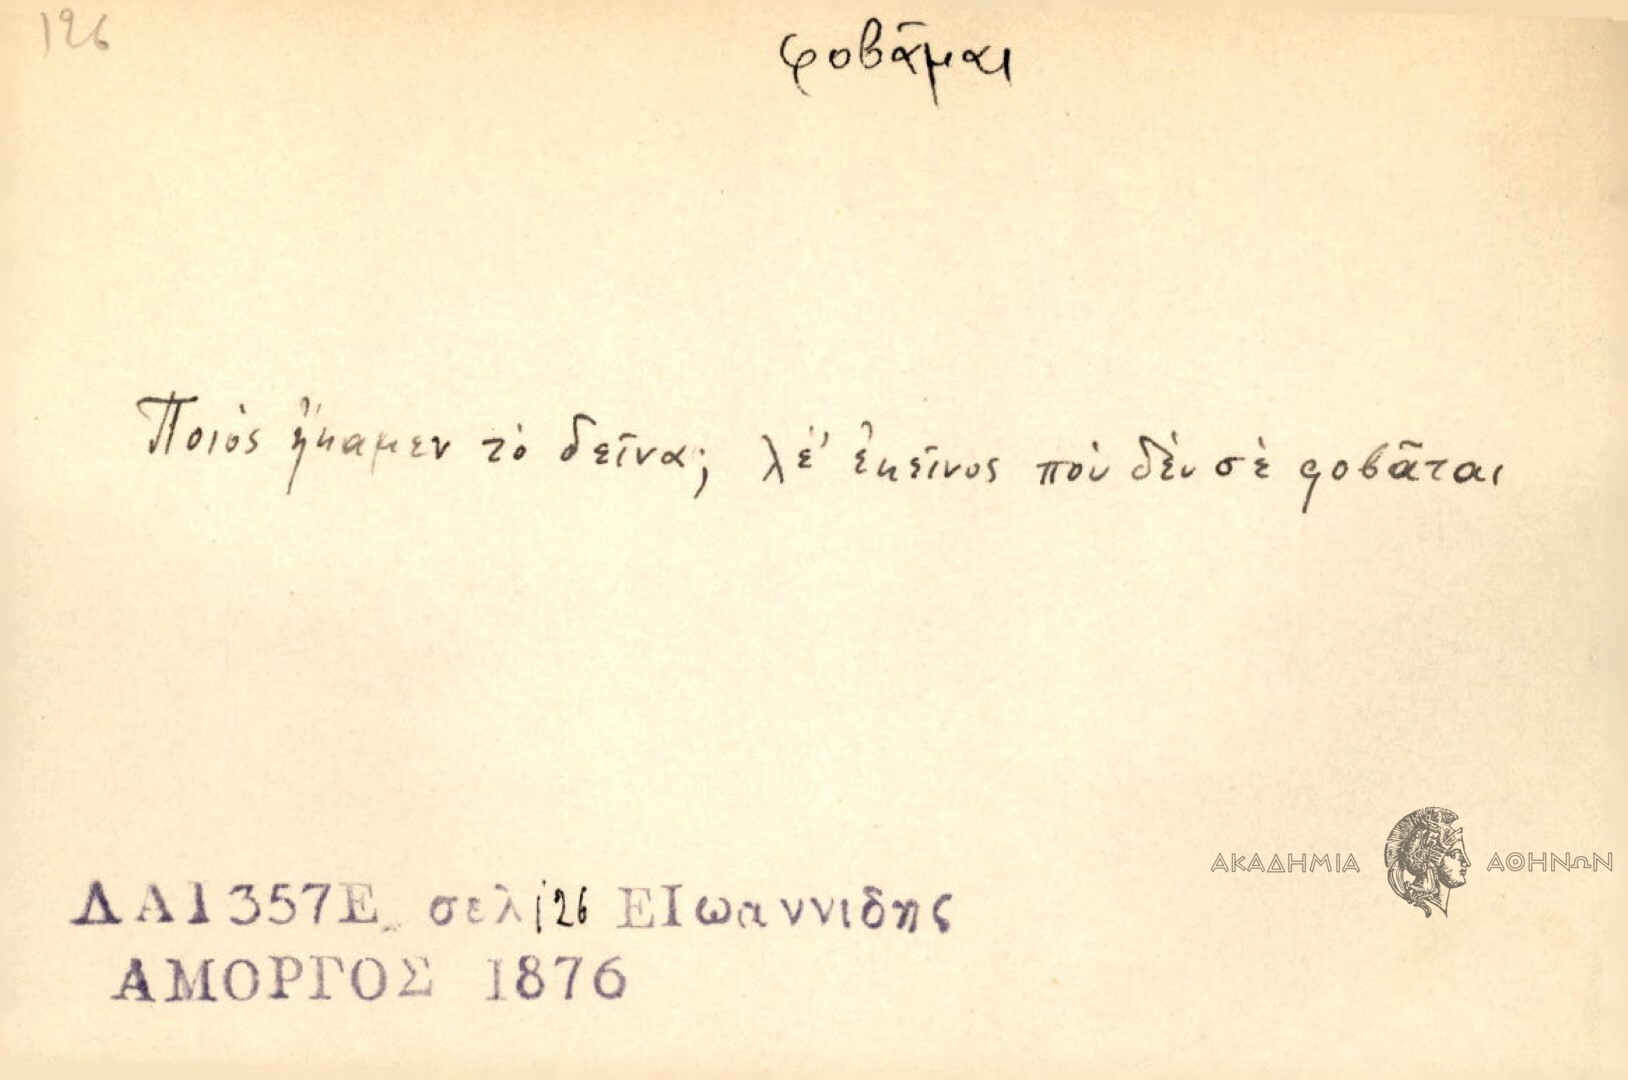 126
φοβᾶμαι
Ποιὸς ἤκαμεν τὸ δεῖνα; λέ' ἐκεῖνος ποὺ δὲν σὲ φοβᾶται
ΑΚΑΔΗΜΙΑ ΑΘΗΝΩΝ
ΔΑ1357Ε, σελ 126 ΕΙωαννιδης
ΑΜΟΡΓΟΣ 1876